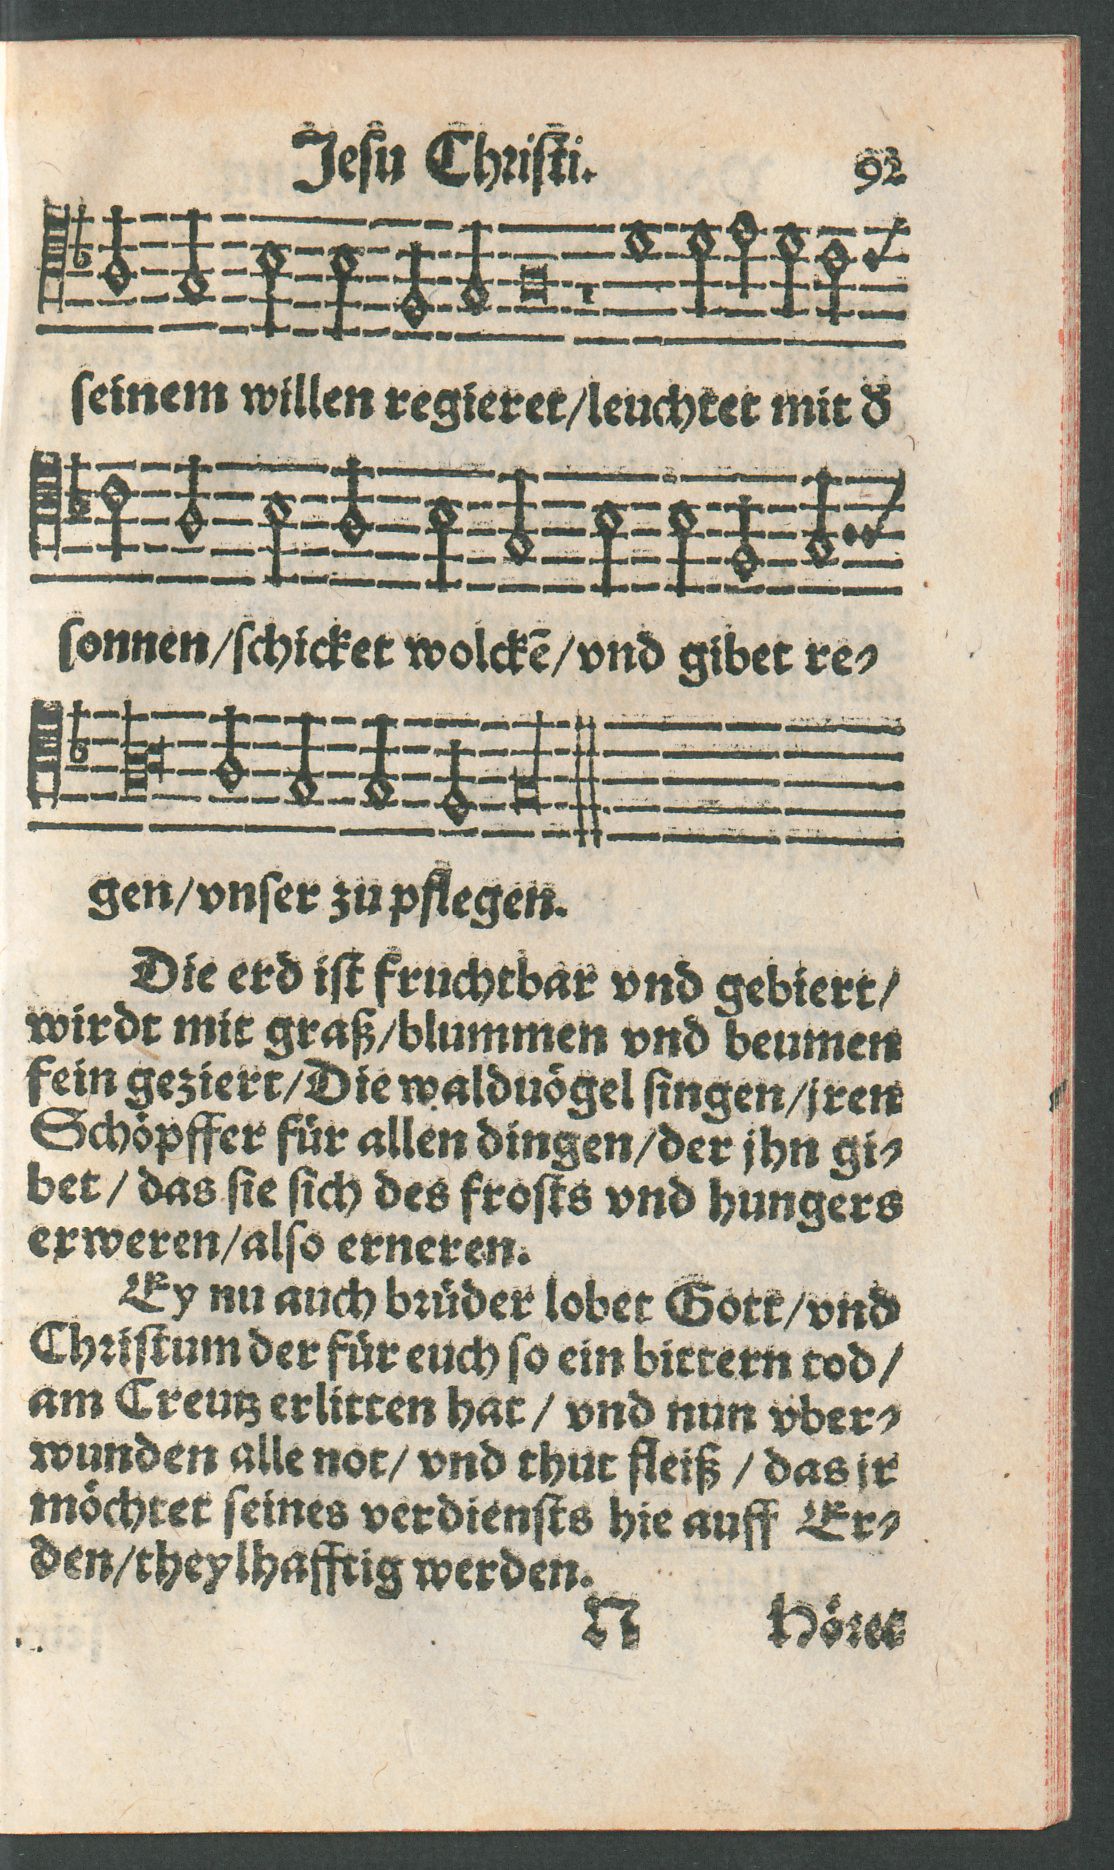 Jesu Christi. 92
seinem willen regieret/leuchtet mit d̕
sonnen/schicket wolckē/vnd gibet re⸗
gen/vnser zu pflegen.
Die erd ist fruchtbar vnd gebiert/
wirdt mit graß/blummen vnd beumen
fein geziert/Die walduögel singen/jren
Schöpffer für allen dingen/der jhn gi⸗
bet/ das sie sich des frosts vnd hungers
erweren/also erneren.
Ey nu auch brüder lobet Gott/vnd
Christum der für euch so ein bittern tod/
am Creutz erlitten hat/ vnd nun vber⸗
wunden alle not/ vnd thut fleiß / das jr
möchtet seines verdiensts hie auff Er⸗
den/theylhafftig werden.
N Höret